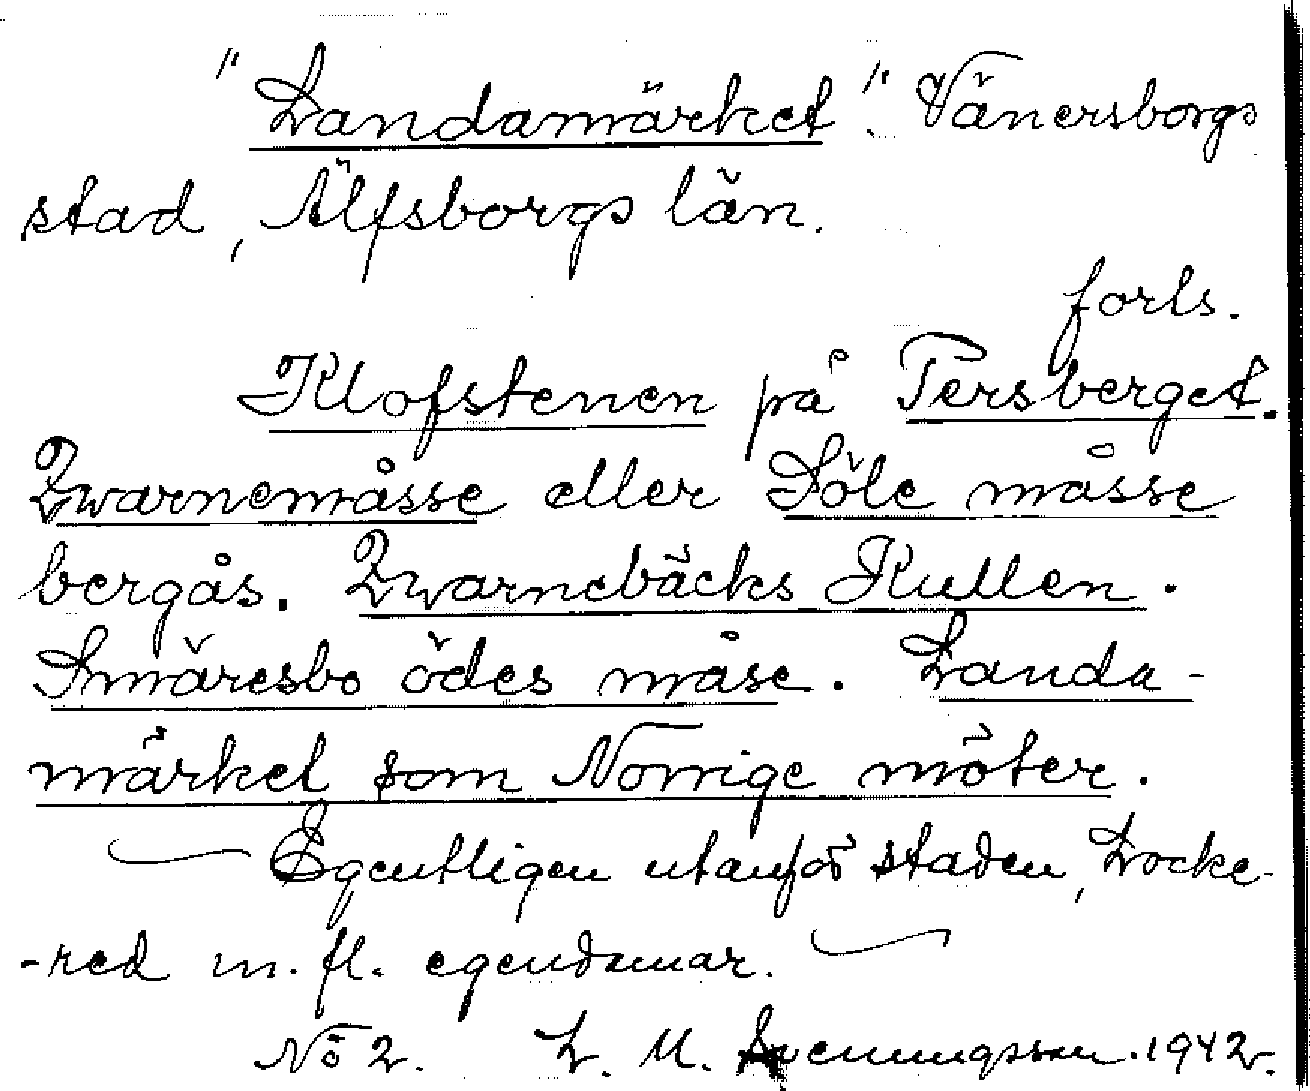 "Landamärket". Vänersborgs
stad, Älfsborgs län.
forts.
Klofstenen på Tersberget.
Qwarnemåsse eller Söle måsse
bergås. Qwarnebäcks Kullen.
Smäresbo ödes måse. Landa-
märket som Norrige möter.
Egentligen utanför staden, Locke-
-red m.fl. egendomar.
No 2. L. M. Svenungsson. 1942.